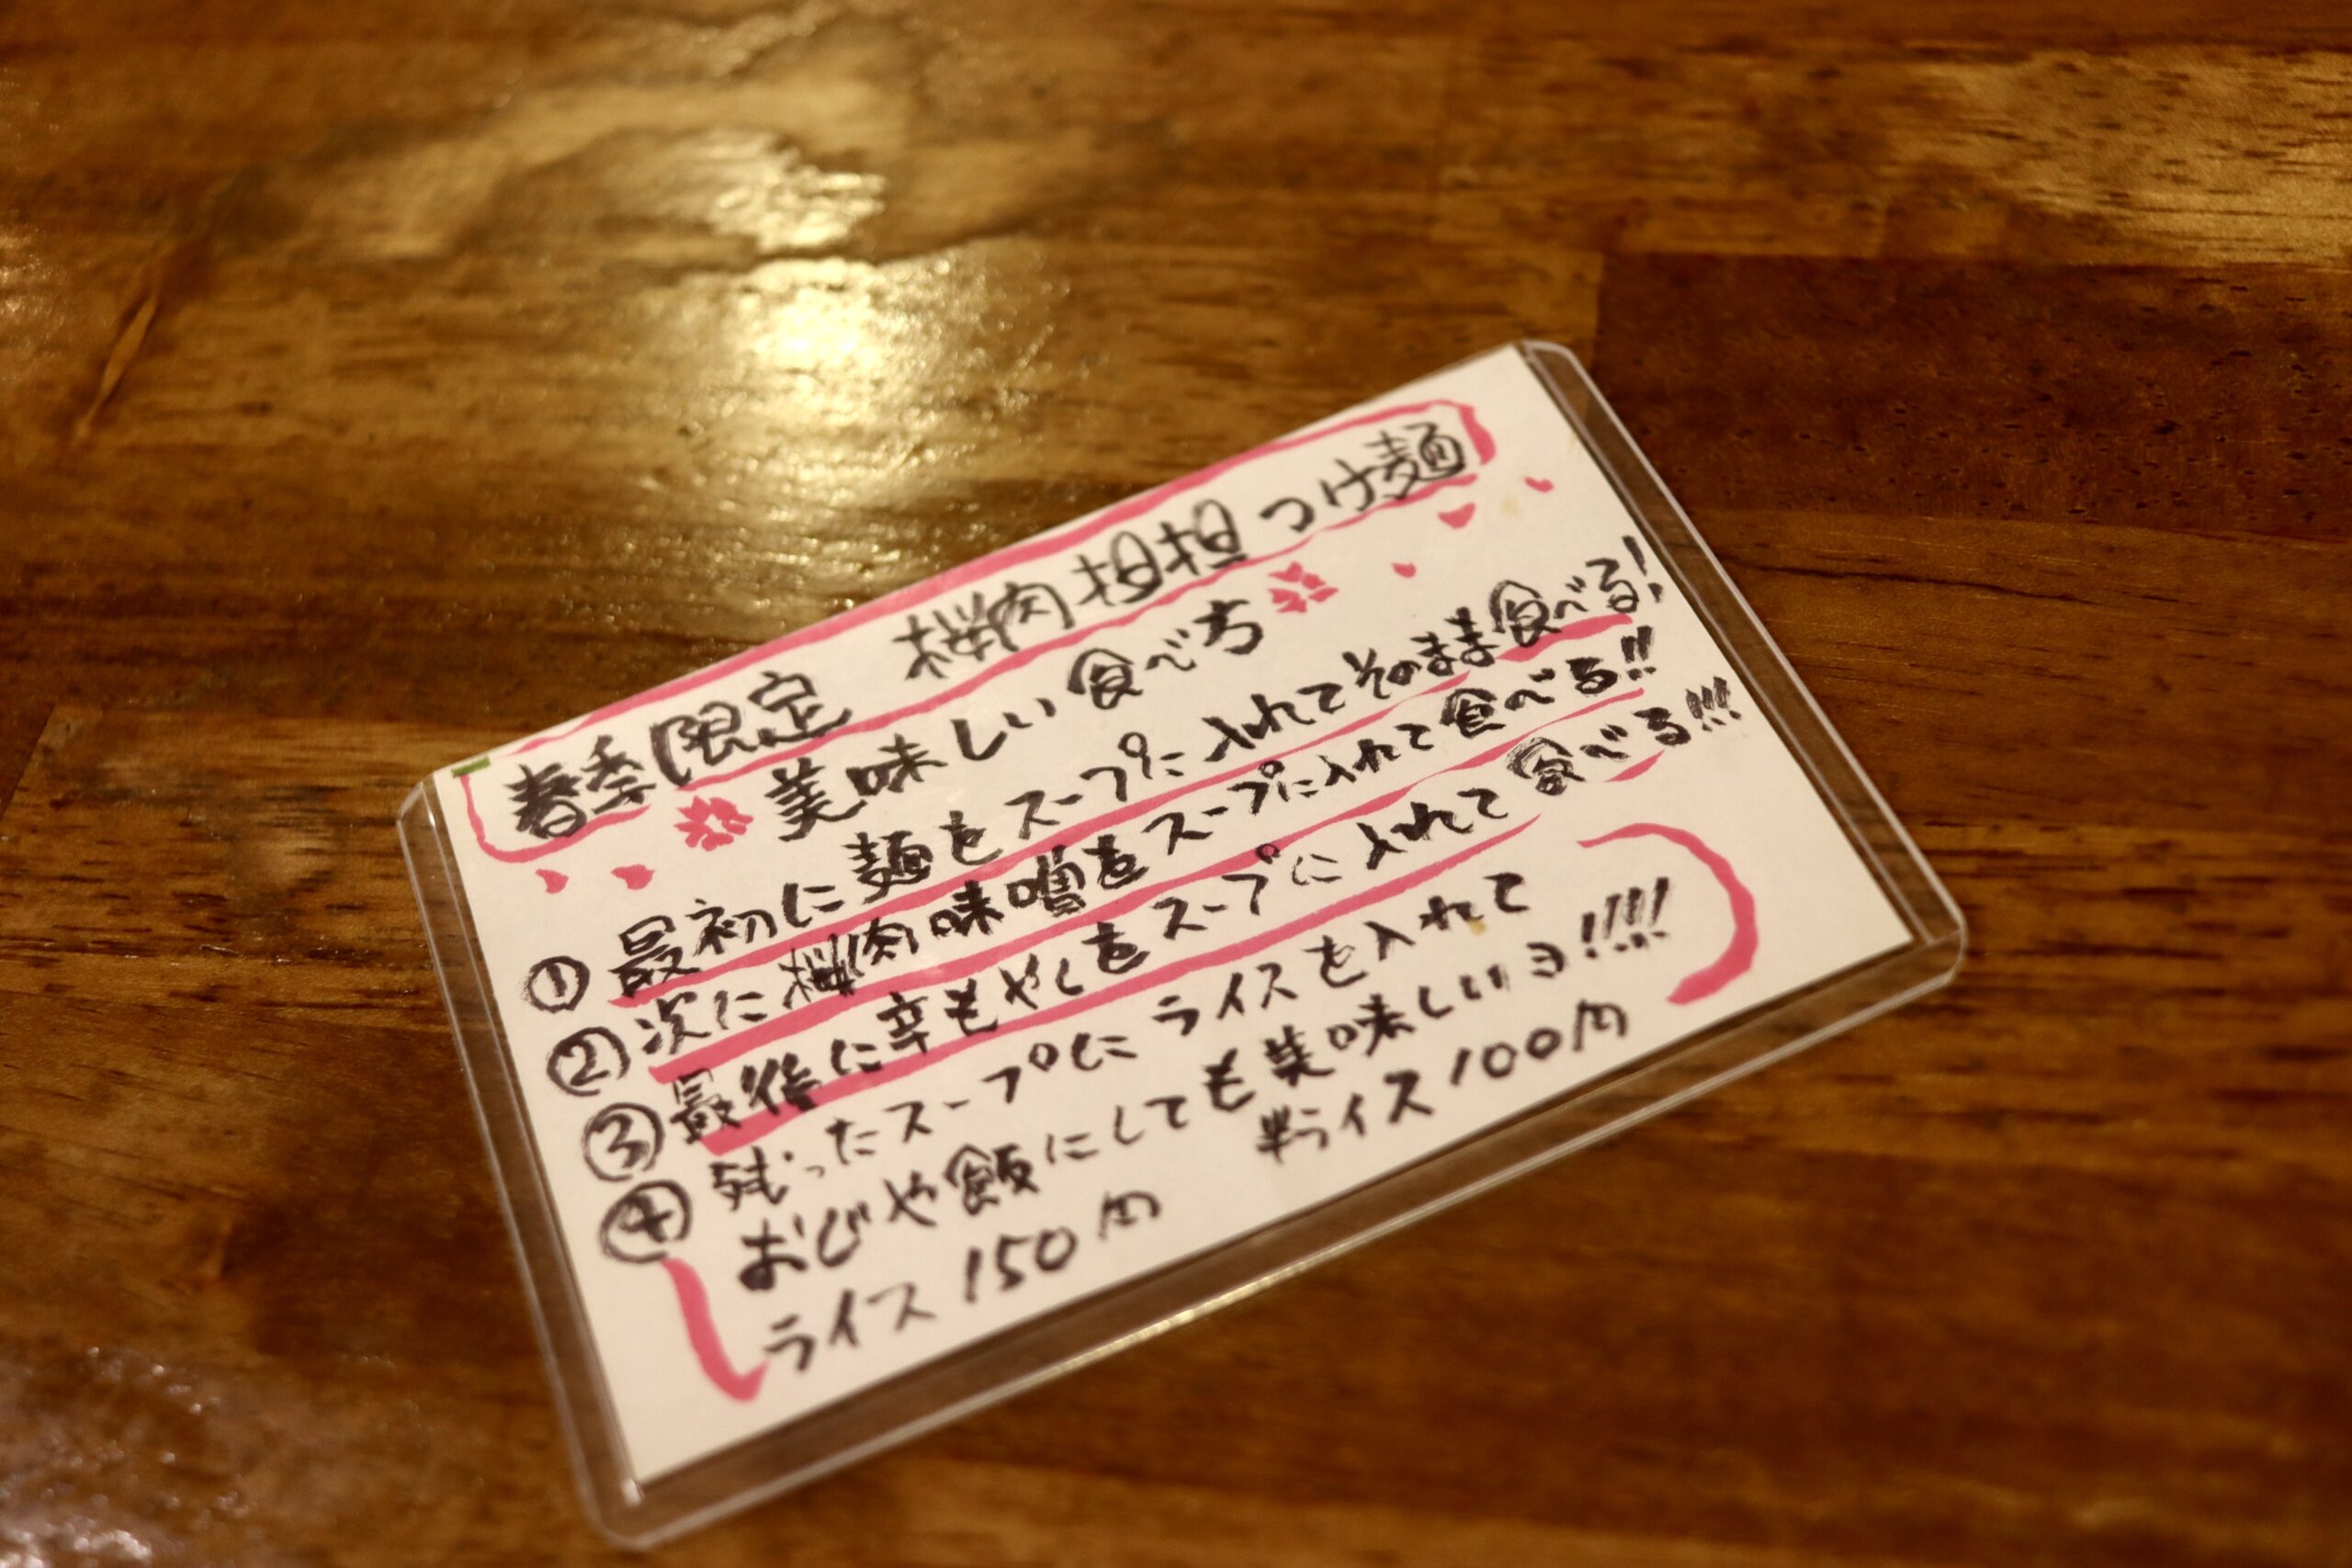 春季限定 桜肉担担つけ麺
美味しい食べ方
① 最初に麺をスープに入れてそのまま食べる!
② 次に桜肉味噌をスープに入れて食べる!!
③ 最後に辛もやしをスープに入れて食べる!!!
④ 残ったスープにライスを入れて
おじや飯にしても美味しいヨ!!!!!
ライス150円 半ライス100円